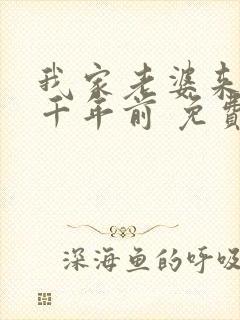 我家老婆来
千年前 免費
深海鱼的呼吸